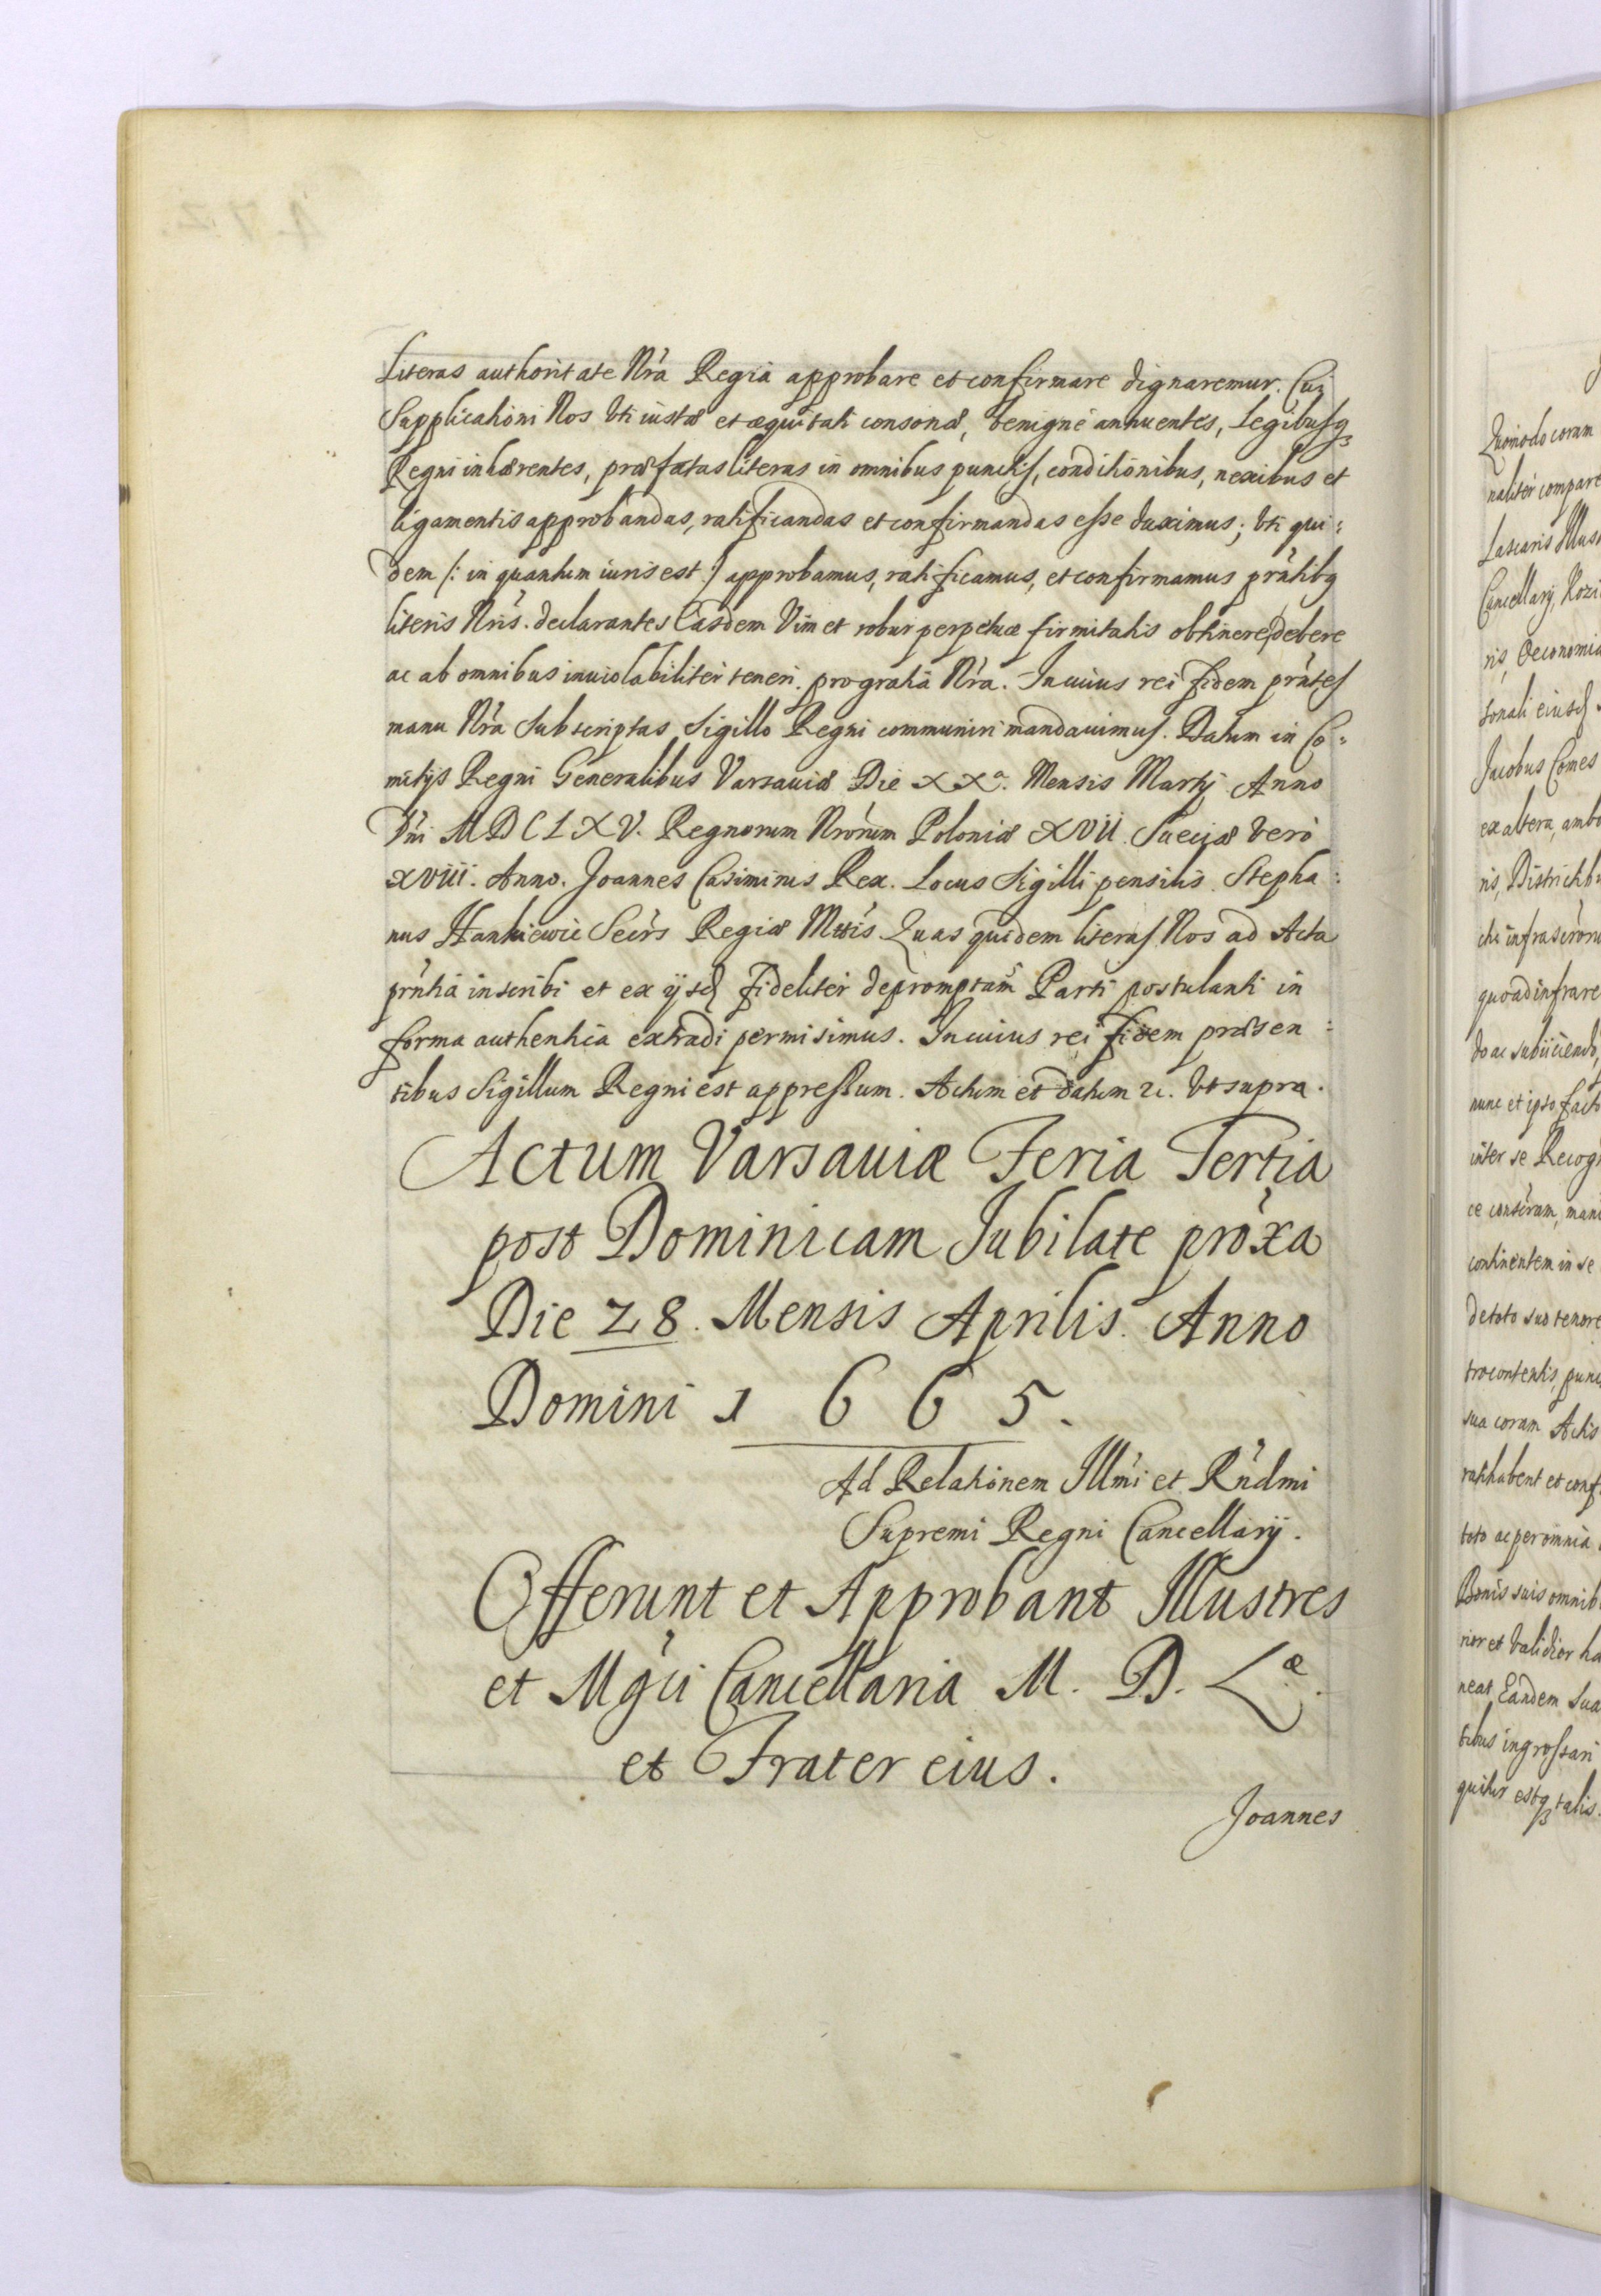 Literas authoritate Nrã Regia approbare et confirmare dignaremur. Cui
Supplicationi Nos Vti iustæ et æquitati consonæ, benigné annuentes, Legibusq₃
Regni inhærentes, præfatas literas in omnibus punctis, conditionibus, nexibus et
ligamentis approbandas, ratificandas et confirmandas esse duximus; Vti qui:
dem /: in quantum iuris est :/ approbamus, ratificamus, et confirmamus prñtibq
literis Nrĩs. declarantes Easdem Vim et robur perpetuæ firmitatis obtinere debere
ac ab omnibus inuiolabilitèr teneri. pro gratia Nrã. In cuius rei fidem prñtes
manu Nrã Subscriptas Sigillo Regni communiri mandauimus. Datum in Co:
mitijs Regni Generalibus Varsauiæ Die XXa. Mensis Martij Anno
Dñi MDCLXV. Regnorum Nrõrum Poloniæ XVII. Sueciæ Verò
XVIII. Anno. Joannes Casimirus Rex. Locus Sigilli pensilis. Stepha:
nus Hankiewic Secrs Regiæ Mttis. Quas quidem literas Nos ad Acta
prñtia inscribi et ex ijsd fidelitèr depromptam Parti postulanti in
forma authentica extradi permisimus. In cuius rei fidem præsen:
tibus Sigillum Regni est appressum. Actum et datum &c. Vt supra.
Actum Varsauiæ Feria Tertia
post Dominicam Jubilate prõxa
Die 28. Mensis Aprilis. Anno
Domini 1 6 6 5.
Ad Relationem Illmi et Rñdmi
Supremi Regni Cancellarij.
Offerunt et Approbant Illustres
et Mgci Cancellaria M. D. Læ.
et Frater eius.
Joannes
Quomodo coram
nalitèr compare
Lascaris Illus
Cancellarij, Rozi
ris, Oeconomia
sonali eiusd
Jacobus Comes
ex altera, ambo
ris, Districtibu
chi infrascrõru
quoad infrare
do ac subiiciendo,
nunc et ipso facto
inter se Recog
ce conseram, manu
continentem in se
de toto suo tenore
tro contentis, punc
sua coram Actis
ratihabent et conf
toto ac per omnia
Bonis suis omnib
rior et Validior ha
neat Eandem sua
tibus ingrossari
quitur estq₃ talis.